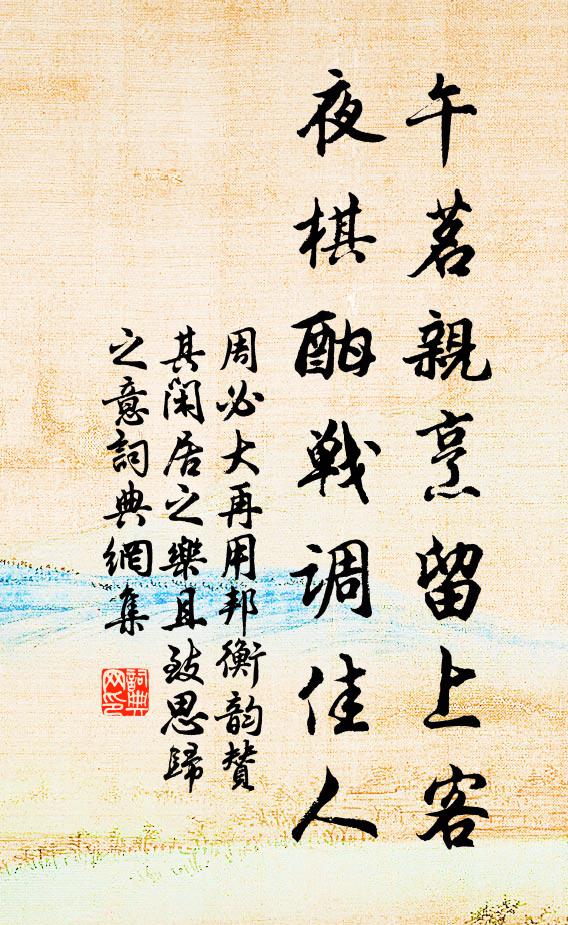 午茗親烹留上客
夜棋酣戰调佳人
周必大再用邦衡韵贊
其閑居之樂且致思歸
之意詞典網集
詞典
网印